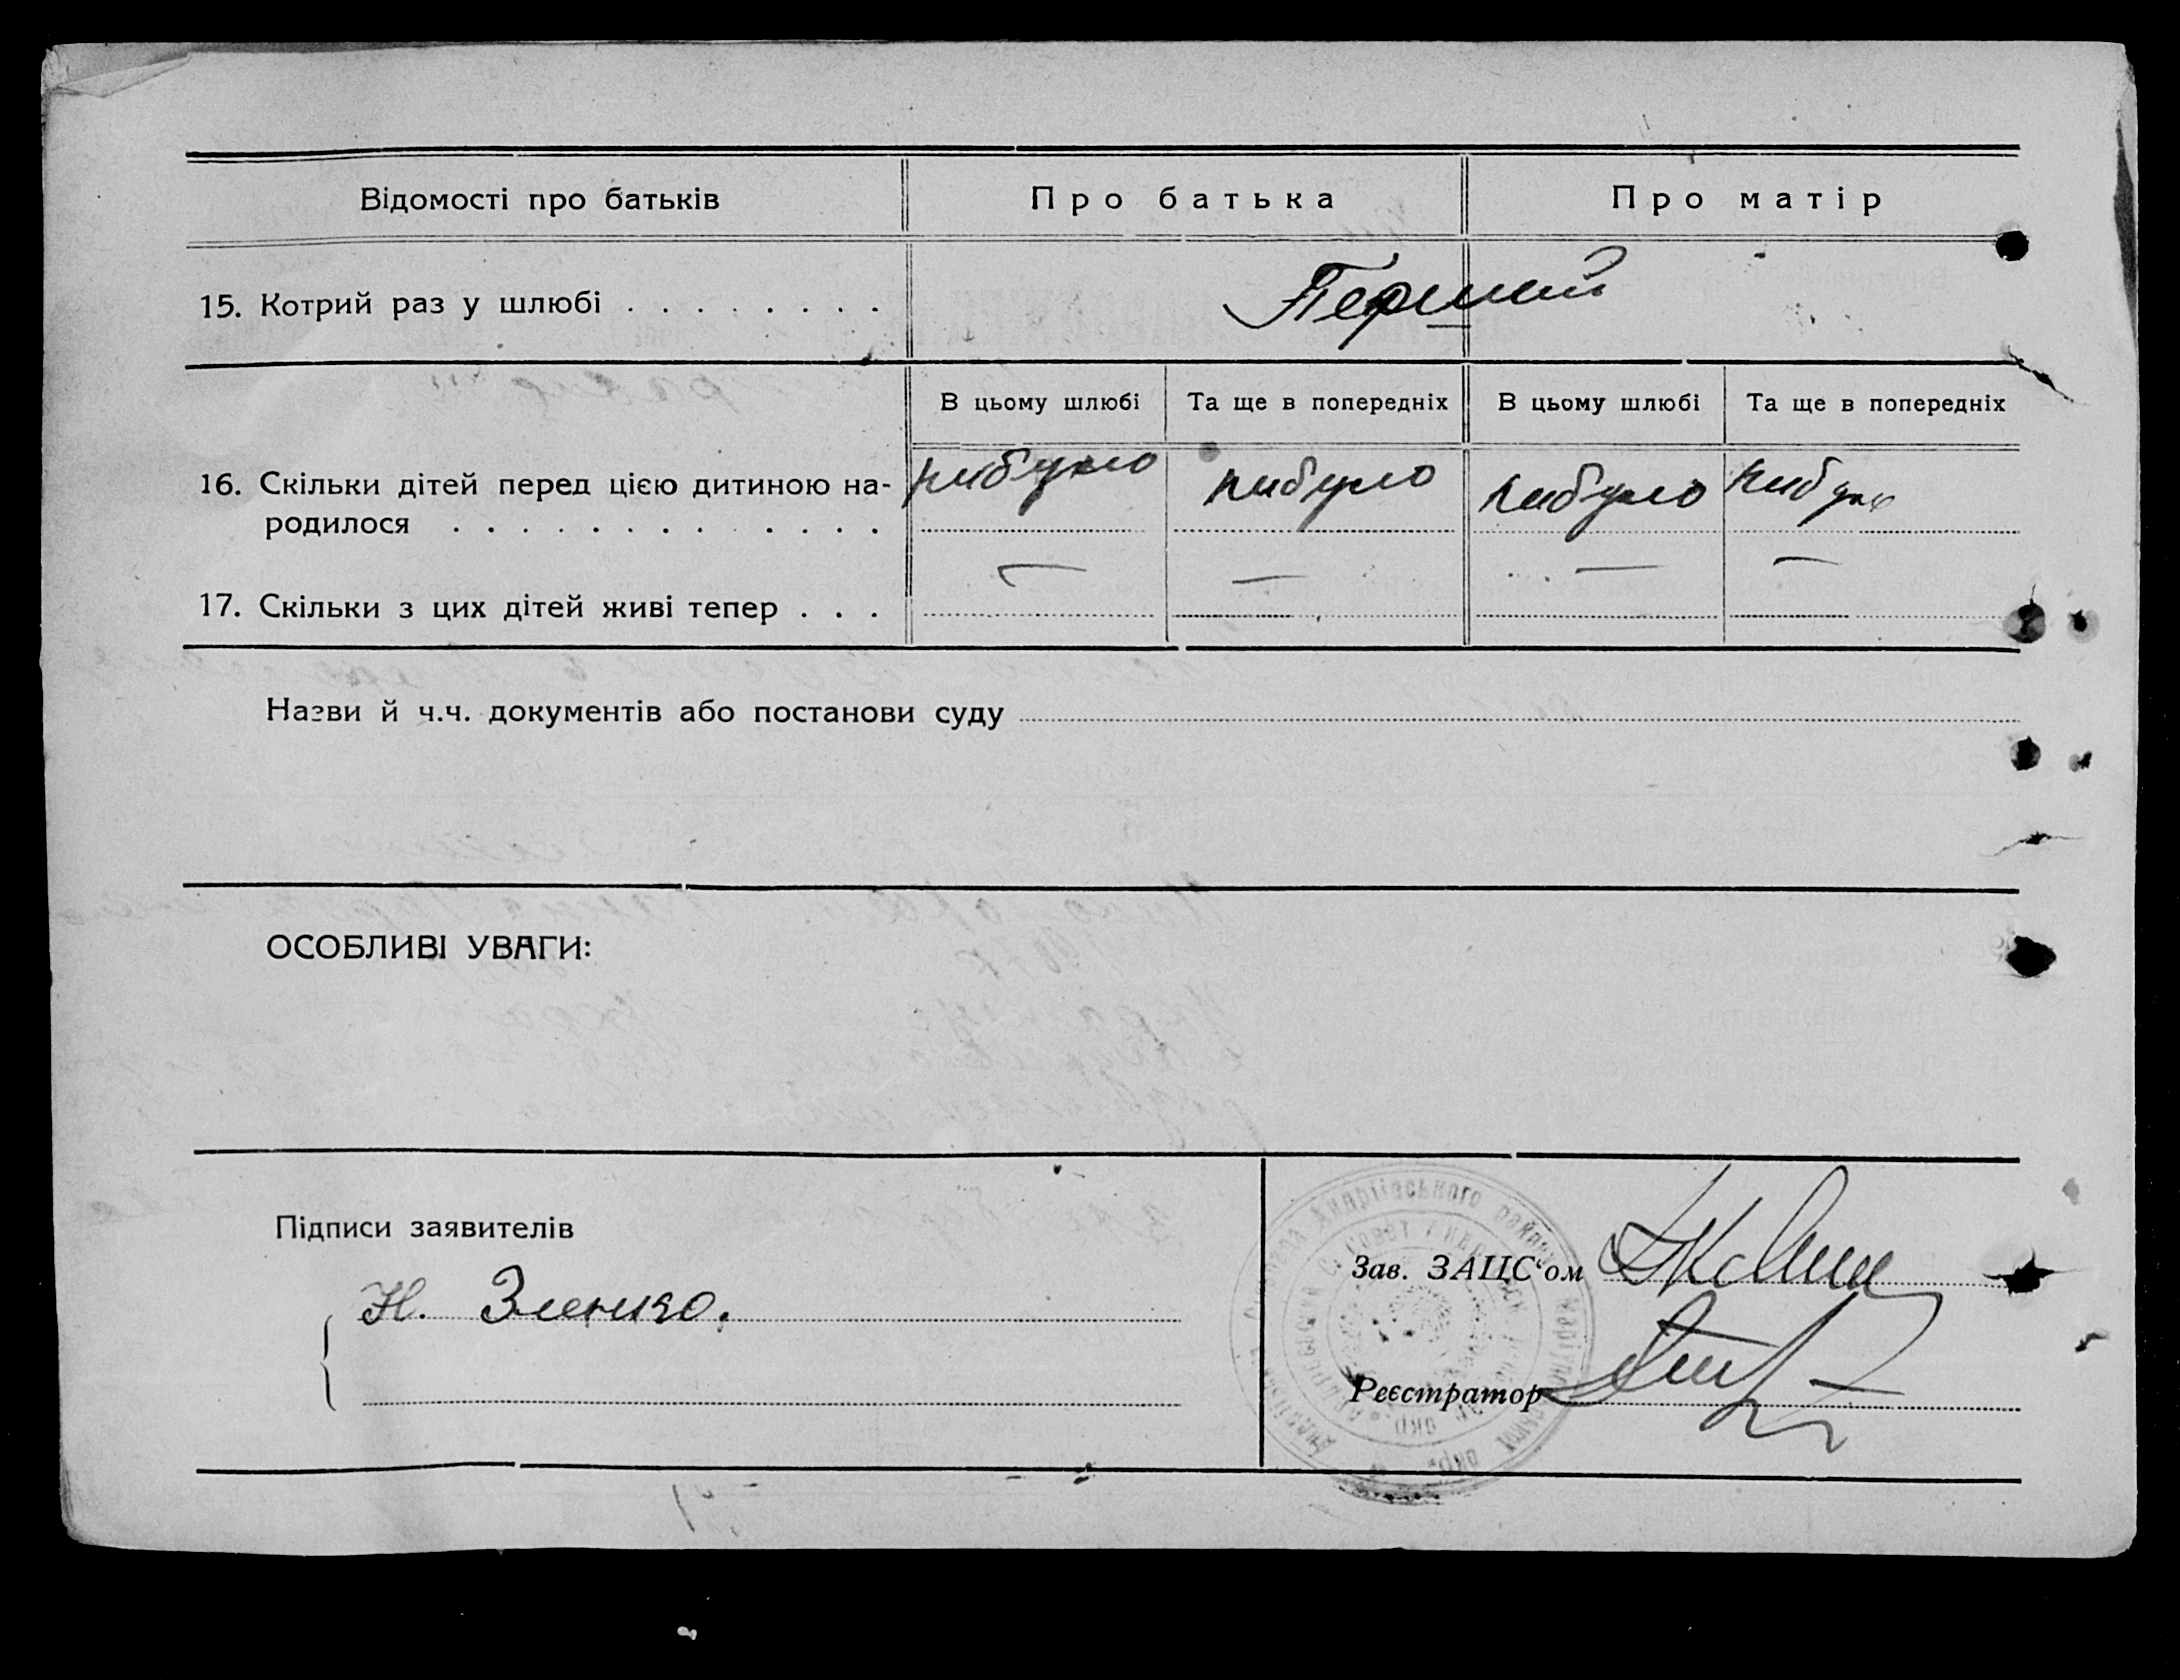 Відомості про батьків Про батька Про матір
15. Котрий раз у шлюбі . . . . . . . . Перший
В цьому шлюбі Та ще в попередніх В цьому шлюбі Та ще в попередніх
16. Скільки дітей перед цією дитиною на- нибуло нибуло нибуло нибуло
родилося . . . . . . . . . . . . .
— — — —
17. Скільки з цих дітей живі тепер . . .
Назви й ч.ч. документів або постанови суду
ОСОБЛИВІ УВАГИ:
Підписи заявителів
Н. Зленко.
Зав. ЗАЦС‘ом
Реєстратор
Андріївського району Маріупольської окр.